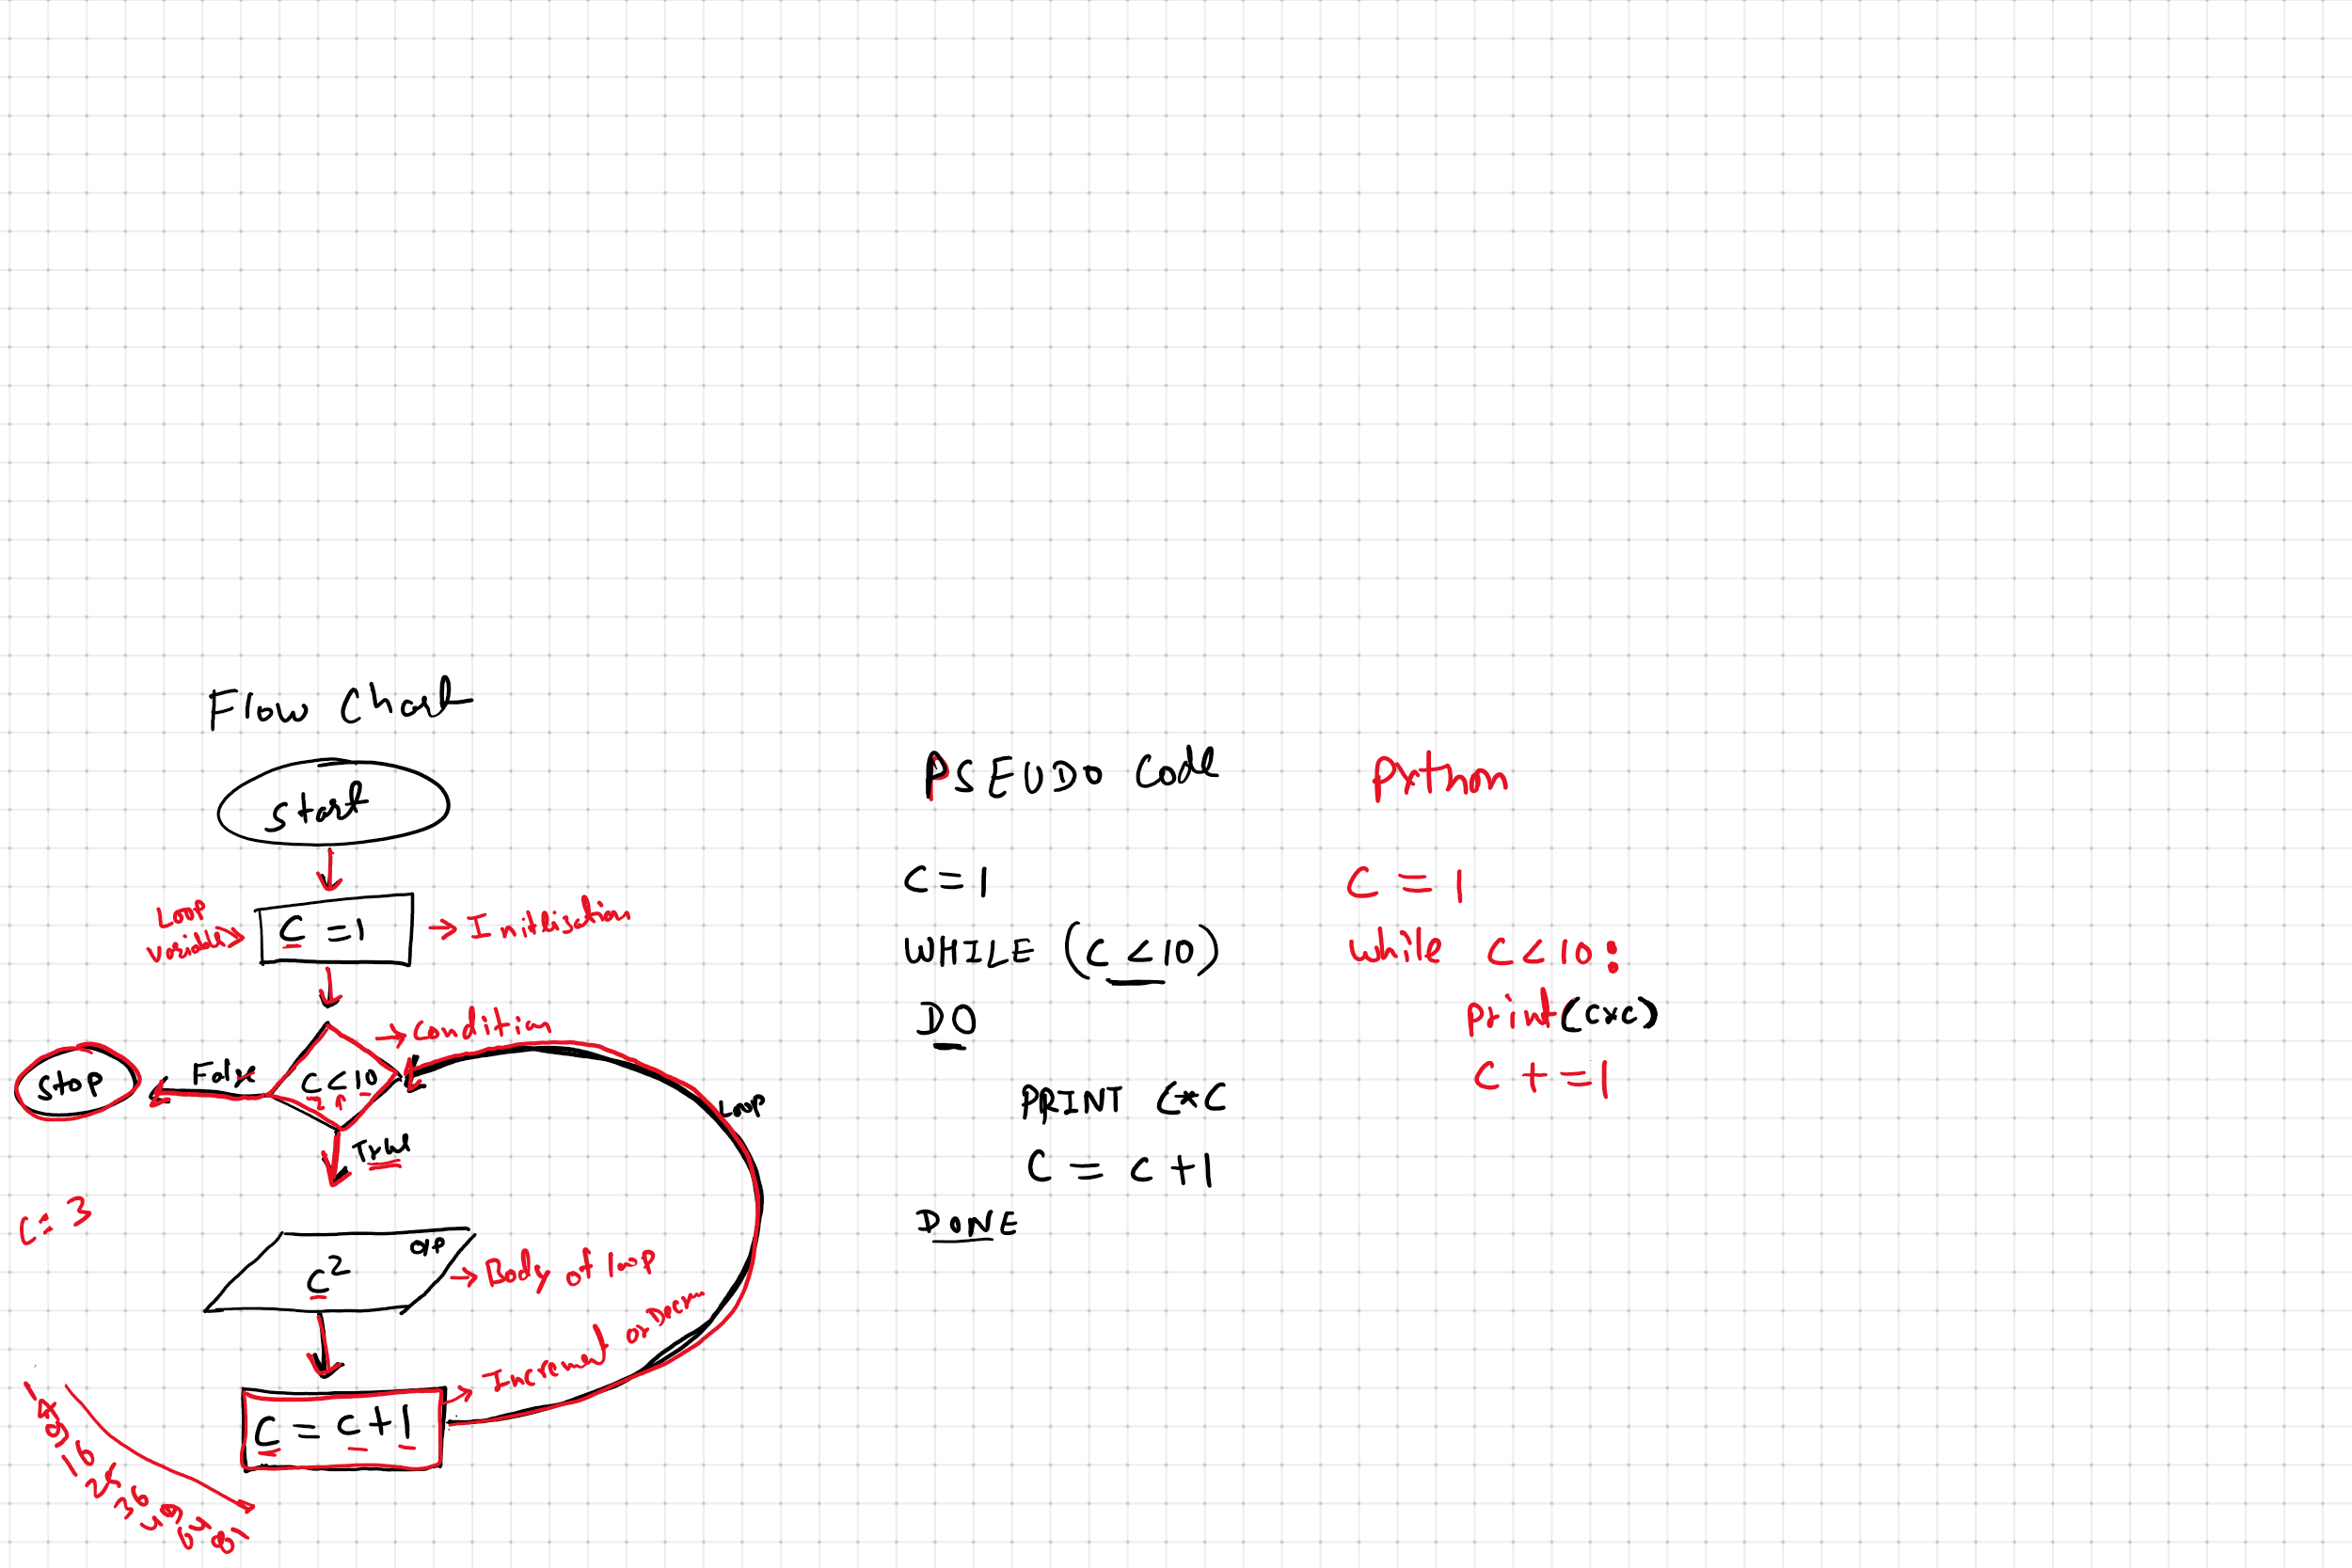 Flow Chart
Start
Loop
variable
C = 1
Initlisation
Condition
Stop
False
C < 10
Loop
True
C = 3
C²
O/P
Body of loop
Increment or Decrm
C = C + 1
1
4
9
16
25
36
49
64
81
PSEUDO Code
C = 1
WHILE (C < 10)
DO
PRINT C*C
C = C + 1
DONE
Python
C = 1
while C < 10:
print(C*C)
C += 1